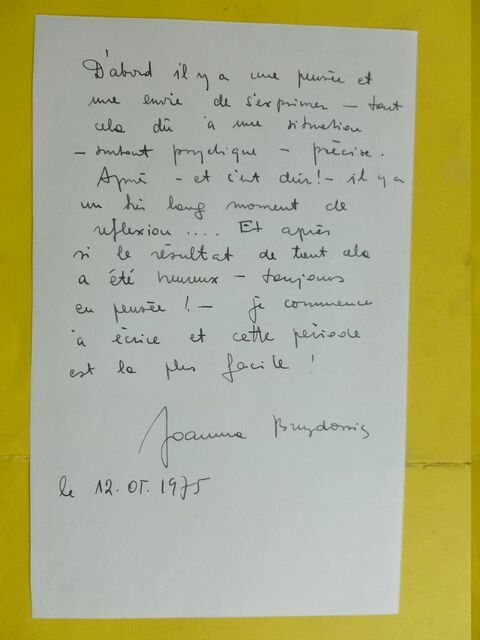 D'abord il y a une pensée et
une envie de s'exprimer – tout
cela dû à une situation
– surtout psychique – précise.
Après – et c'est dur! – il y a
un très long moment de
reflexion .... Et après
si le résultat de tout cela
a été heureux – toujours
en pensée ! – je commence
à écrire et cette période
est la plus facile !
Joanna Bruzdowicz
le 12.01.1975